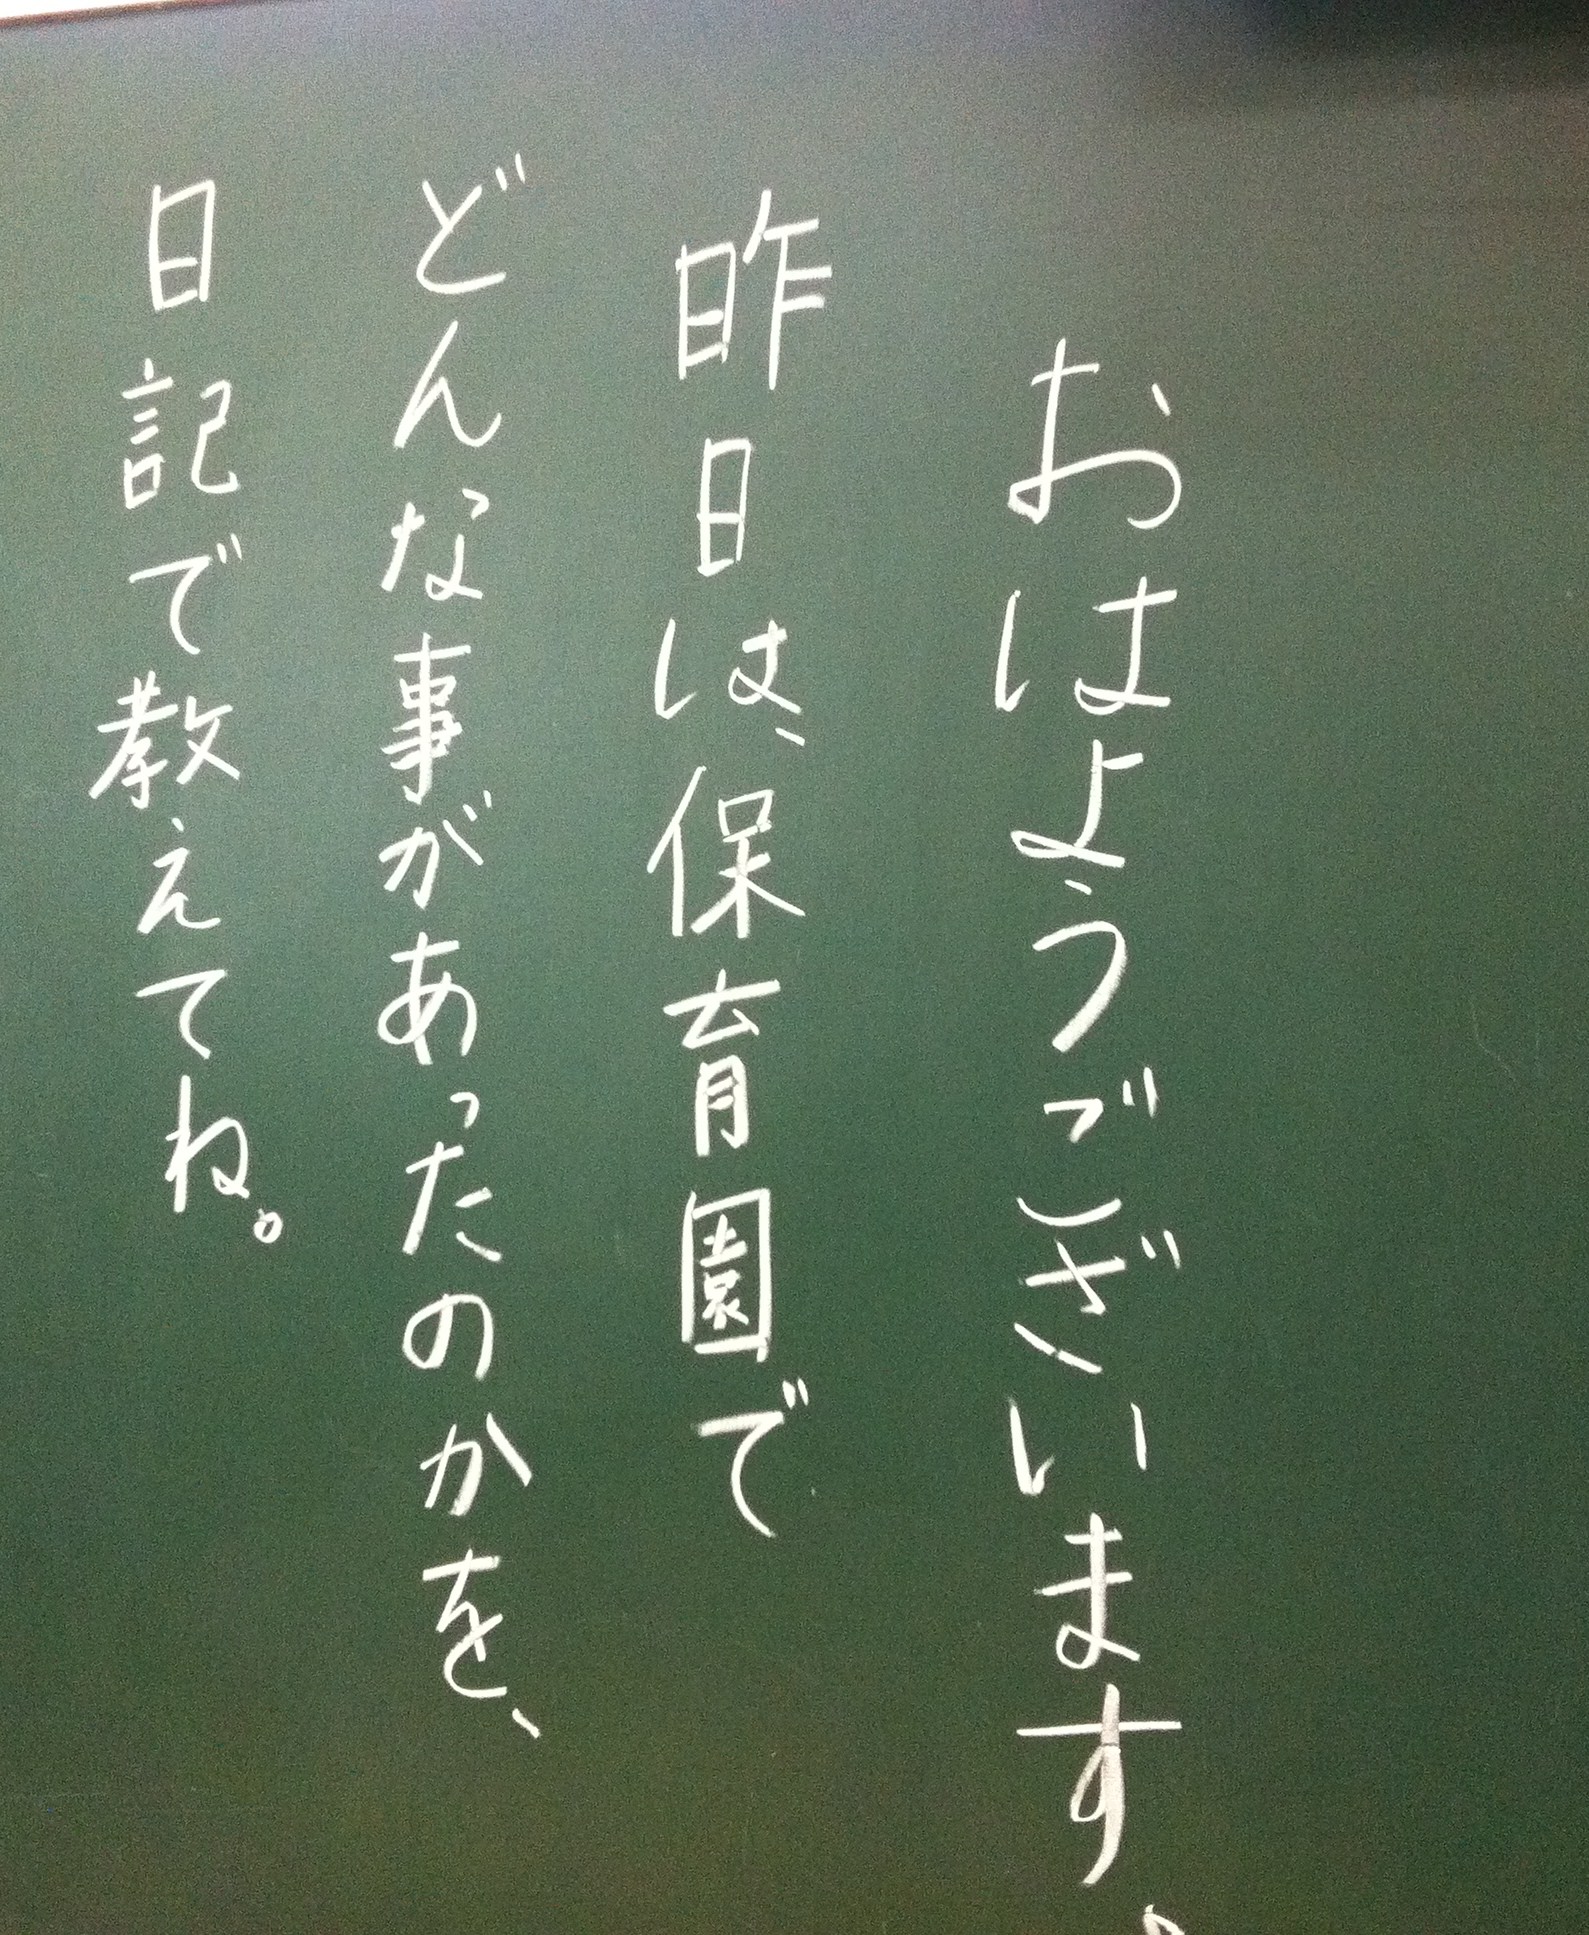 おはようございます。
昨日は、保育園で
どんな事があったのかを、
日記で教えてね。